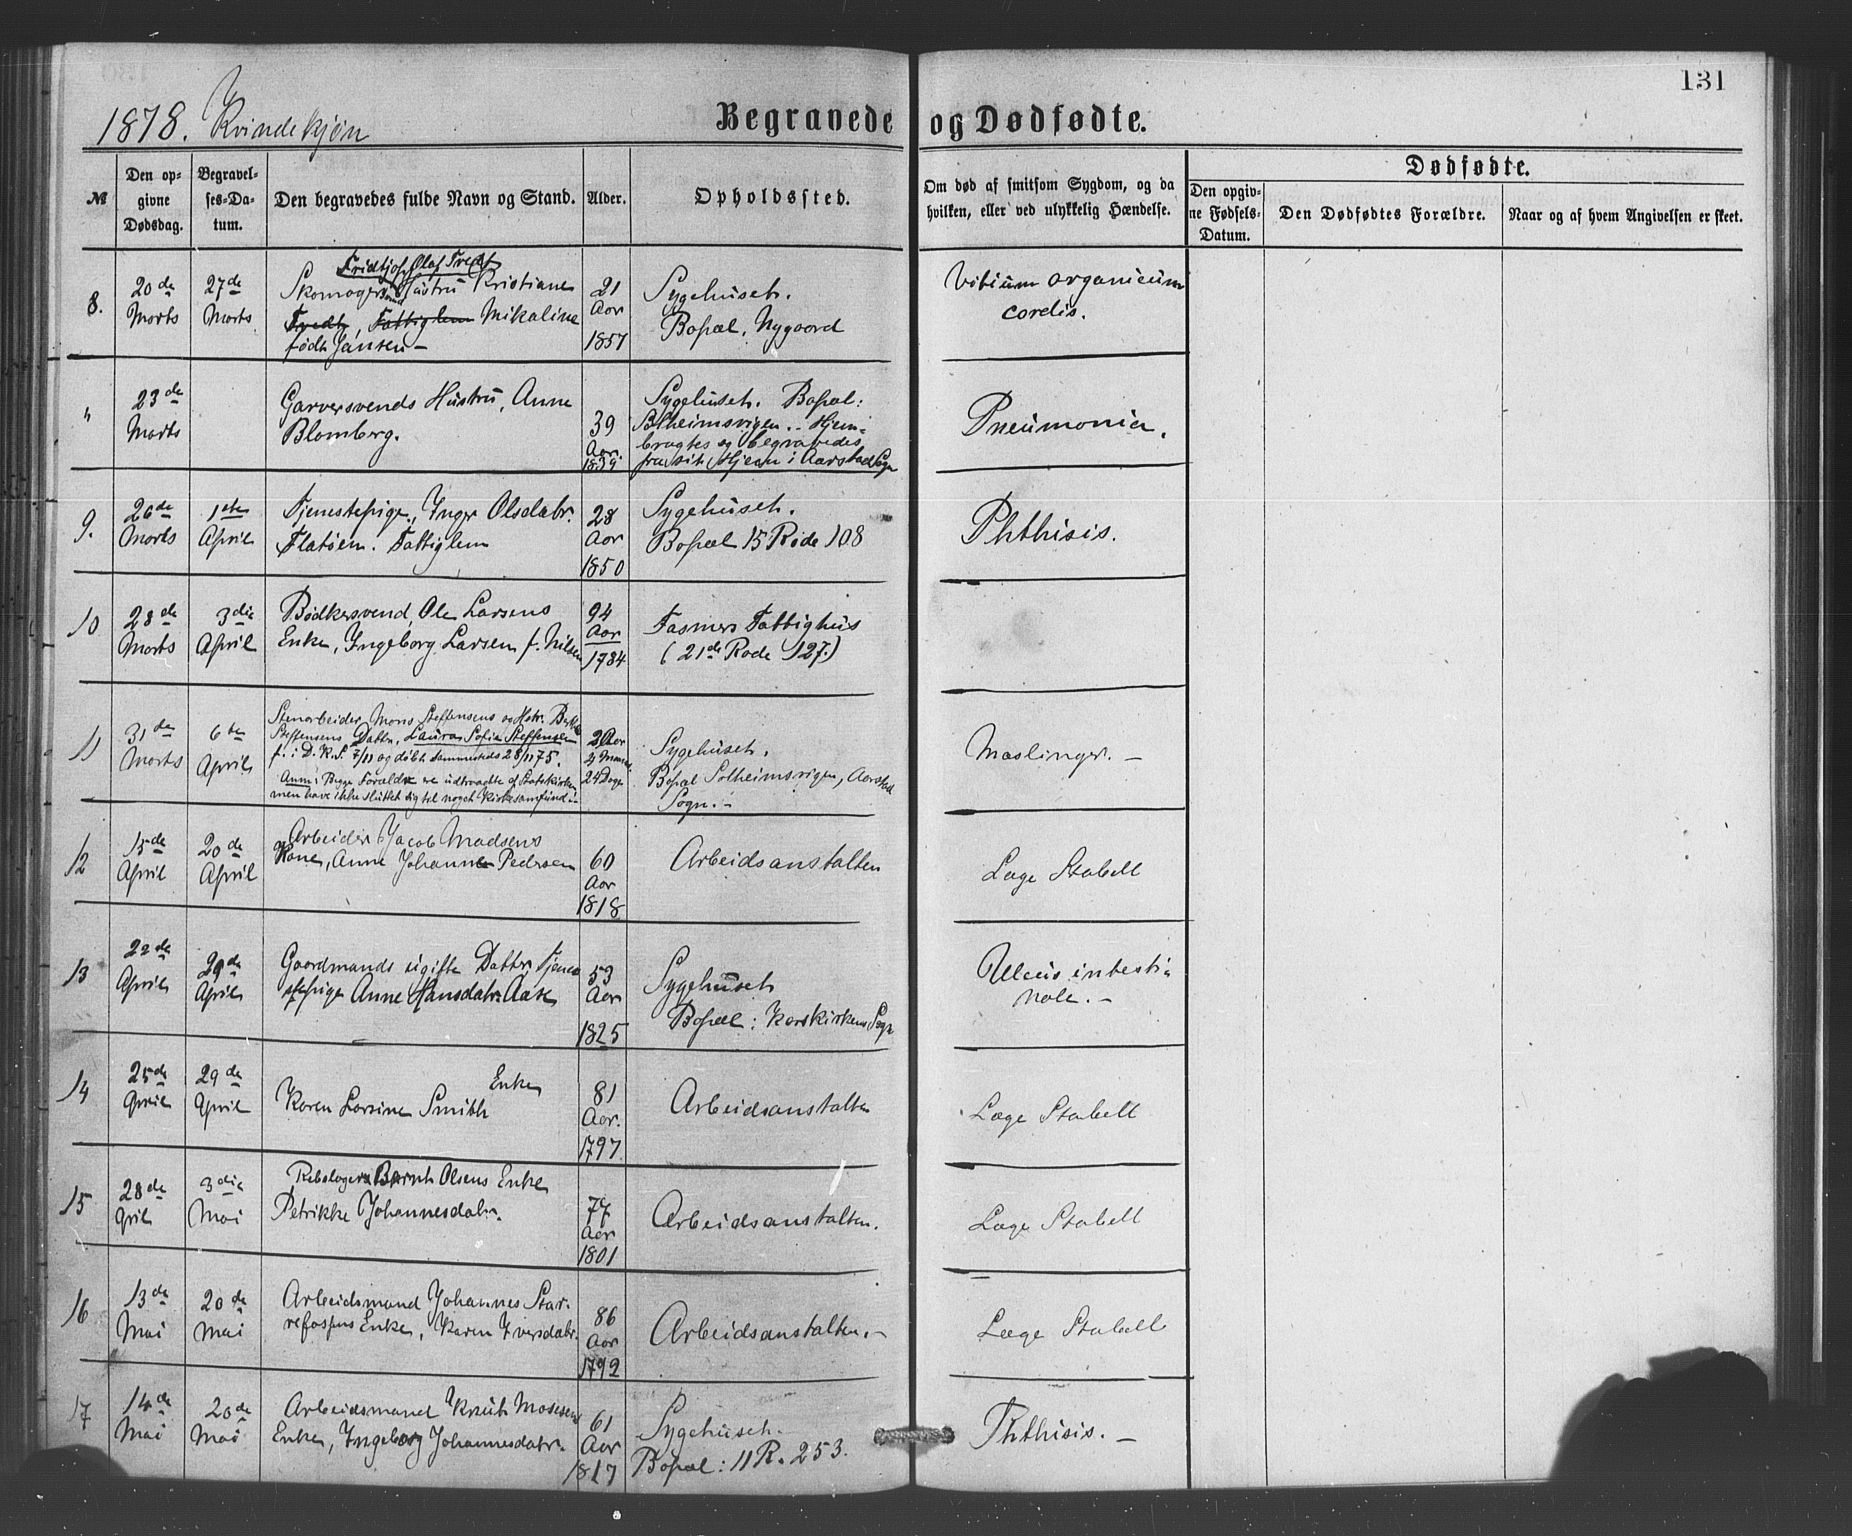 131
1878. Kvindekjøn
Begravede og Dødfødte.
№
Den opgivne Dødsdag.
Begravelses-Datum.
Den begravedes fulde Navn og Stand.
Alder.
Opholdssted.
Om død af smitsom Sygdom, og da
hvilken, eller ved ulykkelig Hændelse.
Dødfødte.
Den opgivne Fødsels-Datum.
Den Dødfødtes Forældre.
Naar og af hvem Angivelsen er skeet.
8.
20de
Marts
27de
Marts
Fridtjof Olaf Tvedt
Skomager Hustru Kristiane
Tvedt, Fattiglem Mikaline
født Jansen –
21
Aar
1857
Sygehuset.
Bopæl. Nygaard
Vitium organicum
cordis.
"
23de
Marts
Garversvends Hustru, Anne
Blomberg.
39
Aar.
1839
Sygehuset. Bopæl:
Solheimsvigen. - Hjem-
bragtes og begravedes
fra sit Hjem i Aarstad Sogn
Pneumonia.
9.
26de
Marts
1ste
April
Tjenestepige, Inger Olsdatr.
Flatøen. Fattiglem
28
Aar
1850
Sygehuset.
Bopæl 15 Rode 108
Phthisis.
10
28de
Marts
3die
April
Bødkersvend, Ole Larsens
Enke, Ingeborg Larsen f. Nilsen
94
Aar
1784
Fasmers Fattighus
(21de Rode 127.)
11
31de
Marts
6te
April
Stenarbeider Mons Steffensens og Hstr.
Steffensens Datter, Laura Sofie Steffensen
f. i D.K.S. 7/11 og døbt sammesteds 28/11 75.
Anm: Begge Forældre er udtraadte af Statskirken
men have ikke sluttet sig til noget Kirkesamfund. –
2 Aar
4 Maan.
24 Dage
Sygehuset.
Bopæl Solheimsvigen, Aarstad
Sogn. –
Mæslinger. –
12
15de
April
20de
April
Arbeider Jacob Madsens
Kone, Anne Johanne Pedersen
60
Aar
1818
Arbeidsanstalten
Læge Stabell
13
22de
April
29de
April
Gaardmands ugifte Datter, Tjene-
stepige Anne Hansdatr. Aase
53
Aar
1825
Sygehuset
Bopæl: Korskirkens Sogn
Ulcus intesti-
nale. –
14
25de
April
29de
April
Enke
Karen Larsine Smith
81
Aar.
1797
Arbeidsanstalten
Læge Stabell
15
28de
April
3die
Mai
Rebslager Bernt Olsens Enke
Petrikke Johannesdatr.
77
Aar
1801
Arbeidsanstalten.
Læge Stabell
16
13de
Mai
20de
Mai
Arbeidsmand Johannes Star-
refossens Enke, Karen Iversdatr.
86
Aar
1792
Arbeidsanstalten. –
Læge Stabell
17
14de
Mai
20de
Mai
Arbeidsmand Knut Mosesens
Enke, Ingeborg Johannesdatr.
61
Aar
1817
Sygehuset.
Bopæl: 11 R. 253.
Phthisis. –